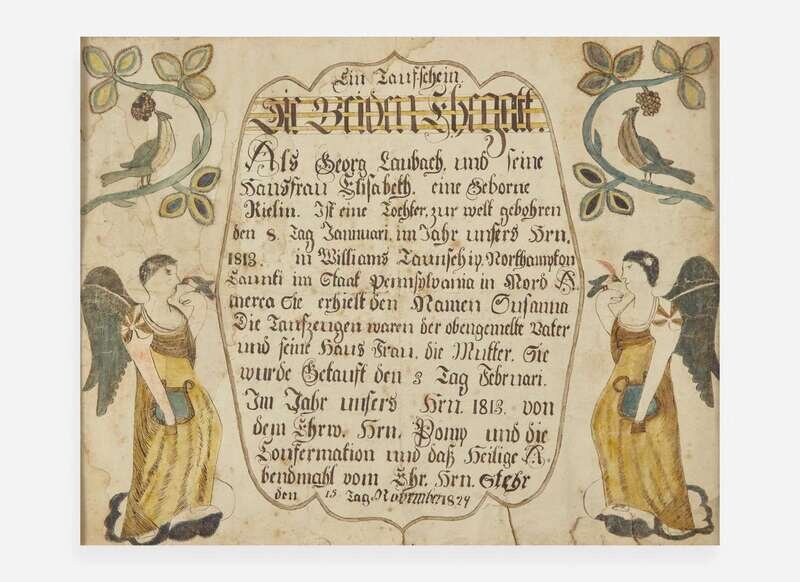 Ein Taufschein.
Die Beiden Ehegatt.
Als Georg Laubach, und seine
Hausfrau Elisabeth, eine Geborne
Rielin. Ist eine Tochter, zur welt gebohren
den 8. Tag Jannuari, im Jahr unsers Hrn.
1813. in Williams Taunschip, Northampton
Caunti im Staat Pennsylvania in Nord A-
merca Sie erhielt den Namen Susanna
Die Taufzeugen waren der obengemelte Vater
und seine Haus Frau, die Mutter. Sie
wurde Getauft den 3 Tag Februari.
Im Jahr unsers Hrn. 1813. von
dem Ehrw. Hrn. Pomp und die
Confermation und daß Heilige A-
bendmahl vom Ehr. Hrn. Stehr
den 15 Tag November 1829